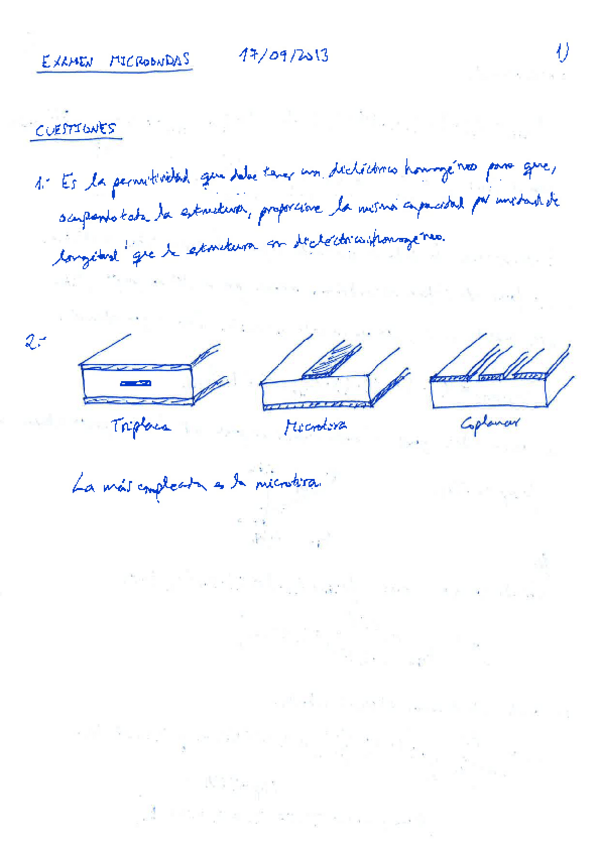 EXAMEN MICROONDAS 17/09/2013 1)
CUESTIONES
1.- Es la permitividad que debe tener un dieléctrico homogéneo para que,
ocupando toda la estructura, proporcione la misma capacidad por unidad de
longitud que la estructura con dieléctrico inhomogéneo.
2.-
Triplaca Microtira Coplanar
La más empleada es la microtira.